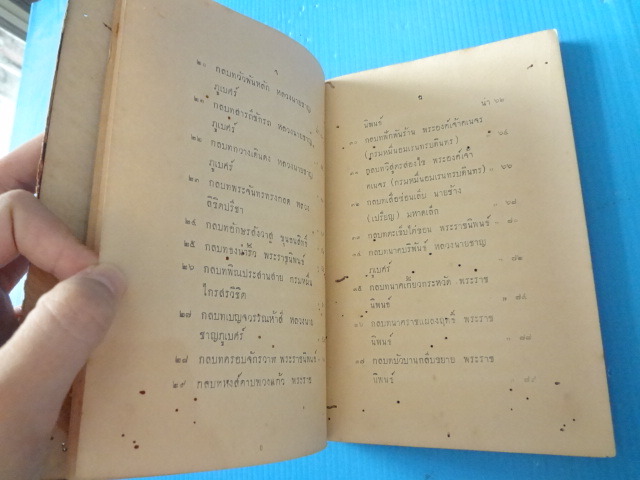 ๒๐ กลบทวัวพันหลัก หลวงนายชาญ
ภูเบศร์
๒๑ กลบทสารถีชักรถ หลวงนายชาญ
ภูเบศร์
๒๒ กลบทกวางเดินดง หลวงนายชาญ
ภูเบศร์
๒๓ กลบทพระจันทรทรงกลด หลวง
ลิขิตปรีชา
๒๔ กลบทยักษรสังวาส ขุนธนสิทธิ์
๒๕ กลบท พระราชนิพนธ์
๒๖ กลบทพิณประสานสาย กรมหมื่น
ไกรสรวิชิต
๒๗ กลบทเบญจวรรณห้าสี หลวงนาย
ชาญภูเบศร์
๒๘ กลบทครอบจักรวาฬ พระราชนิพนธ์
๒๙ กลบทหงส์คาบพวงแก้ว พระราช
น่า ๖๒
นิพนธ์
๓๐ พระองค์เจ้าคเนจร
(กรมหมื่นอมเรนทรบดินทร) ๖๔
๓๑ พระองค์เจ้า
คเนจร (กรมหมื่นอมเรนทรบดินทร) ๖๖
๓๒ กลบทเสือซ่อนเล็บ นายช้าง
(เปรียญ) มหาดเล็ก ๖๘
๓๓ พระราชนิพนธ์ ๘๐
๓๔ กลบทนาคบริพันธ์ หลวงนายชาญ
ภูเบศร์ ๘๒
๓๕ กลบทนาคเกี้ยวกระหวัด พระราช
นิพนธ์
๓๖ กลบทนาคราชแผลงฤทธิ์ พระราช
นิพนธ์
๓๗ กลบทบัวบานกลีบขยาย พระราช
นิพนธ์